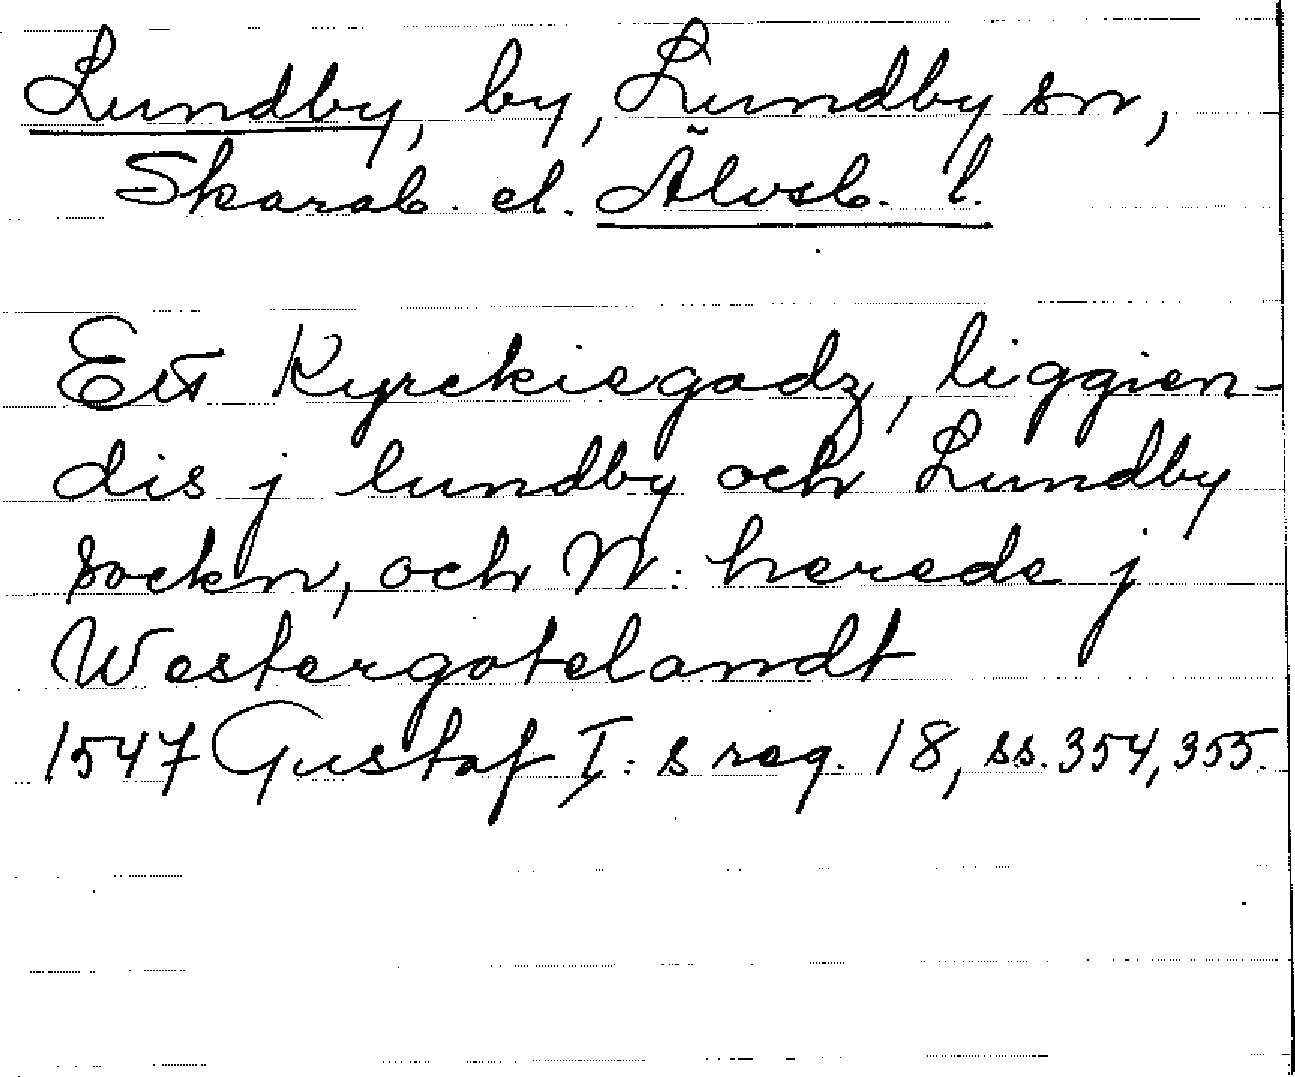 Lundby, by, Lundby sn,
Skarab. el. Älvsb. l.
Ett Kyrckiegodz, liggien-
dis j lundby och Lundby
sockn, och N. herede j
Westergotelandt
1547 Gustaf I:s reg. 18, ss. 354, 355.